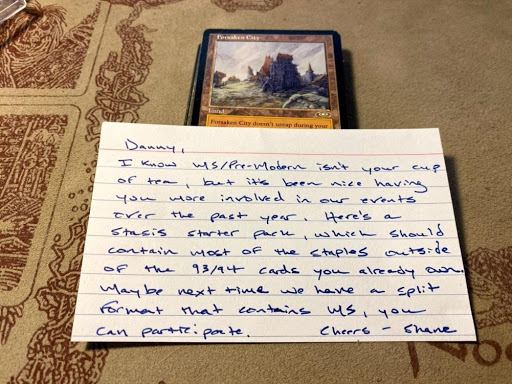 Forsaken City
Land
Forsaken City doesn't untap during your
Danny,
I know MS/Pre-Modern isn't your cup
of tea, but it's been nice having
you more involved in our events
over the past year. Here's a
Stasis starter pack, which should
contain most of the staples outside
of the 93/94 cards you already own.
Maybe next time we have a split
format that contains MS, you
can participate. Cheers - Shane